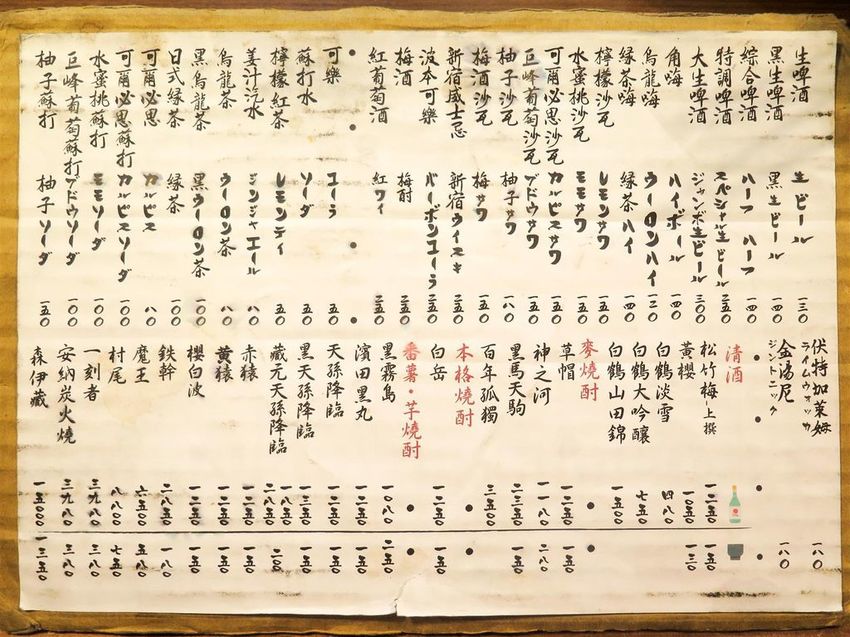 生啤酒 生ビール 一三〇
黑生啤酒 黑生ビール 一四〇
綜合啤酒 ハーフハーフ 一四〇
特調啤酒 スペシャル生ビール 二五〇
大生啤酒 ジャンボ生ビール 三〇〇
角嗨 ハイボール 一四〇
烏龍嗨 ウーロンハイ 一二〇
緑茶嗨 緑茶ハイ 一四〇
檸檬沙瓦 レモンサワ 一五〇
水蜜桃沙瓦 モモサワ 一五〇
可爾必思沙瓦 カルピスサワ 一五〇
巨峰葡萄沙瓦 ブドウサワ 一五〇
柚子沙瓦 柚子サワ 一八〇
梅酒沙瓦 梅サワ 一五〇
新宿威士忌 新宿ウイスキ 二五〇
波本可樂 バーボンコーラ 二五〇
梅酒 梅酎 二五〇
紅葡萄酒 紅ワイ 二五〇
可樂 コーラ 五〇
蘇打水 ソーダ 五〇
檸檬紅茶 レモンティ 五〇
姜汁汽水 ジンジャエール 八〇
烏龍茶 ウーロン茶 八〇
黑烏龍茶 黑ウーロン茶 一〇〇
日式緑茶 緑茶 一〇〇
可爾必思 カルピス 八〇
可爾必思蘇打 カルピスソーダ 一〇〇
水蜜桃蘇打 モモソーダ 一〇〇
巨峰葡萄蘇打 ブドウソーダ 一〇〇
柚子蘇打 柚子ソーダ 一五〇
伏特加萊姆 ライムウォッカ 一八〇
金湯尼 ジントニック 一八〇
清酒
松竹梅-上撰 一二五〇 一五〇
黃櫻 一〇五〇 一三〇
白鶴淡雪 四八〇
白鶴大吟釀 七五〇
白鶴山田錦 一五〇〇
麥燒酎
草帽 一二五〇 一五〇
神之河 一一八〇 二八〇
黑馬天駒 二三五〇 一五〇
百年孤獨 三五〇〇
本格燒酎
白岳 一二五〇 一五〇
番薯・芋燒酎
黑霧島 一〇八〇 二五〇
濱田黑丸 一二五〇 一五〇
天孫降臨 一二五〇 一五〇
黑天孫降臨 一二五〇 一五〇
藏元天孫降臨 一八五〇
赤猿 二八五〇 二〇〇
黃猿 一二五〇 一五〇
櫻白波 一二五〇 一五〇
鉄幹 二八五〇 一八〇
魔王 六五〇〇 五八〇
村尾 八八〇〇 七五〇
一刻者 三九八〇 三八〇
安納炭火燒 三九八〇 三八〇
森伊藏 一五〇〇〇 一三五〇